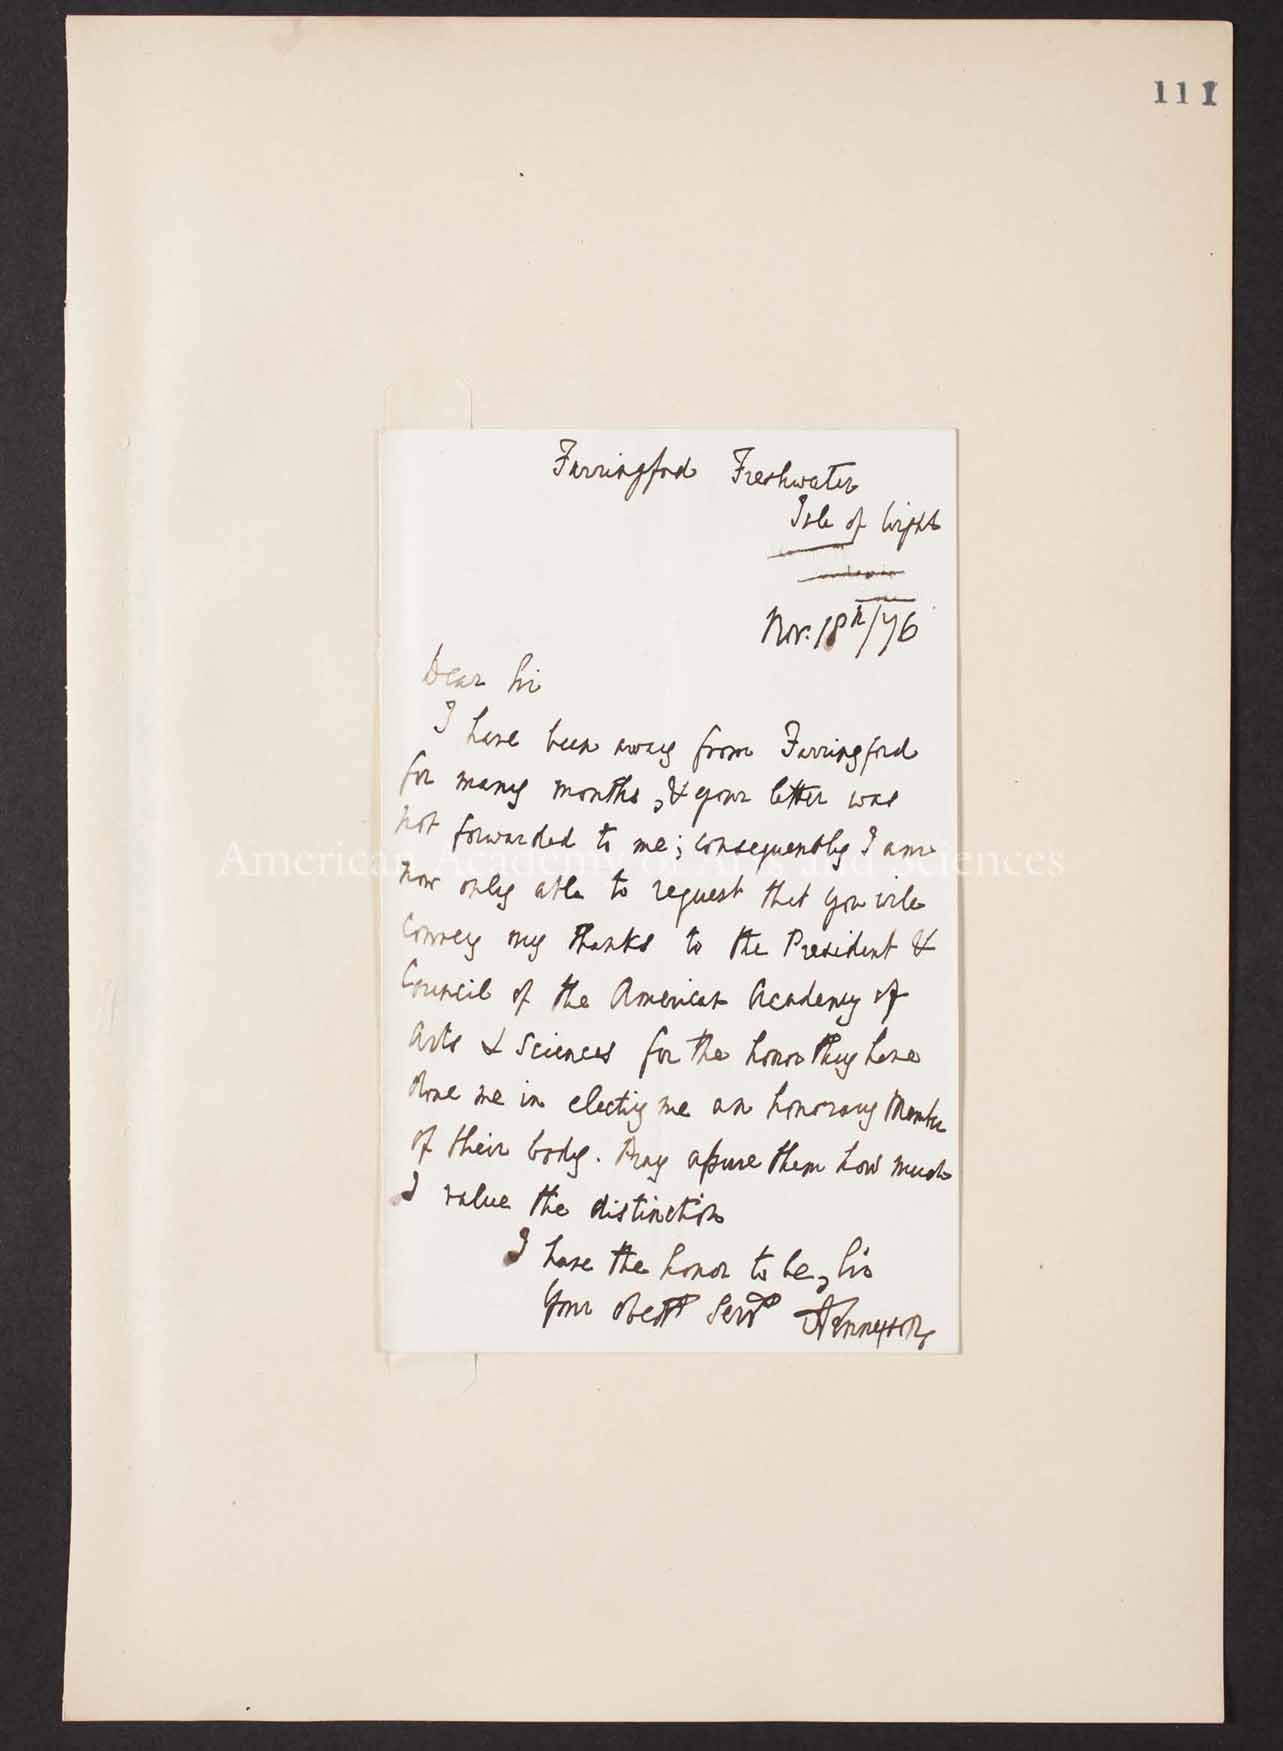 111
Farringford Freshwater
Isle of Wight
Nov. 18th/76
Dear Sir
I have been away from Farringford
for many months, & your letter was
not forwarded to me; consequently I am
American Academy of Arts and Sciences
now only able to request that you will
convey my thanks to the President &
Council of the American Academy of
Arts & Sciences for the honor they have
done me in electing me an honorary Member
of their body. Pray assure them how much
I value the distinction
I have the honor to be, Sir
Your obedt Servt ATennyson